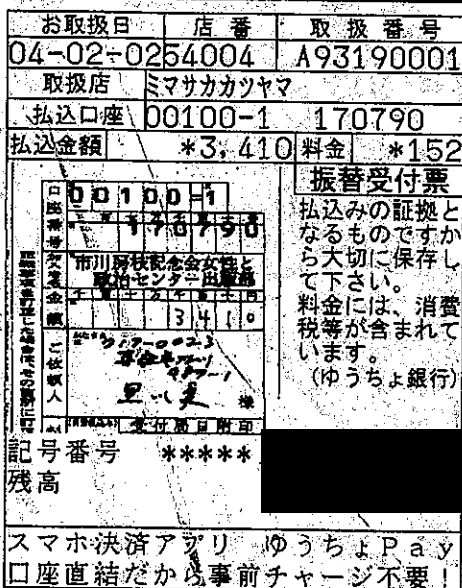 お取扱日 店番 取扱番号
04-02-02 54004 A93190001
取扱店 ミマサカカツヤマ
払込口座 00100-1 170790
払込金額 *3,410 料金 *152
振替受付票
払込みの証拠と
なるものですか
ら大切に保存し
て下さい。
料金には、消費
税等が含まれて
います。
(ゆうちょ銀行)
口座番号 00100-1
170790
加入者名 市川房枝記念会女性と
政治センター出版部
金額 3410
ご依頼人
様
受付局日附印
記号番号 *****
残高
スマホ決済アプリ ゆうちょPay
口座直結だから事前チャージ不要!